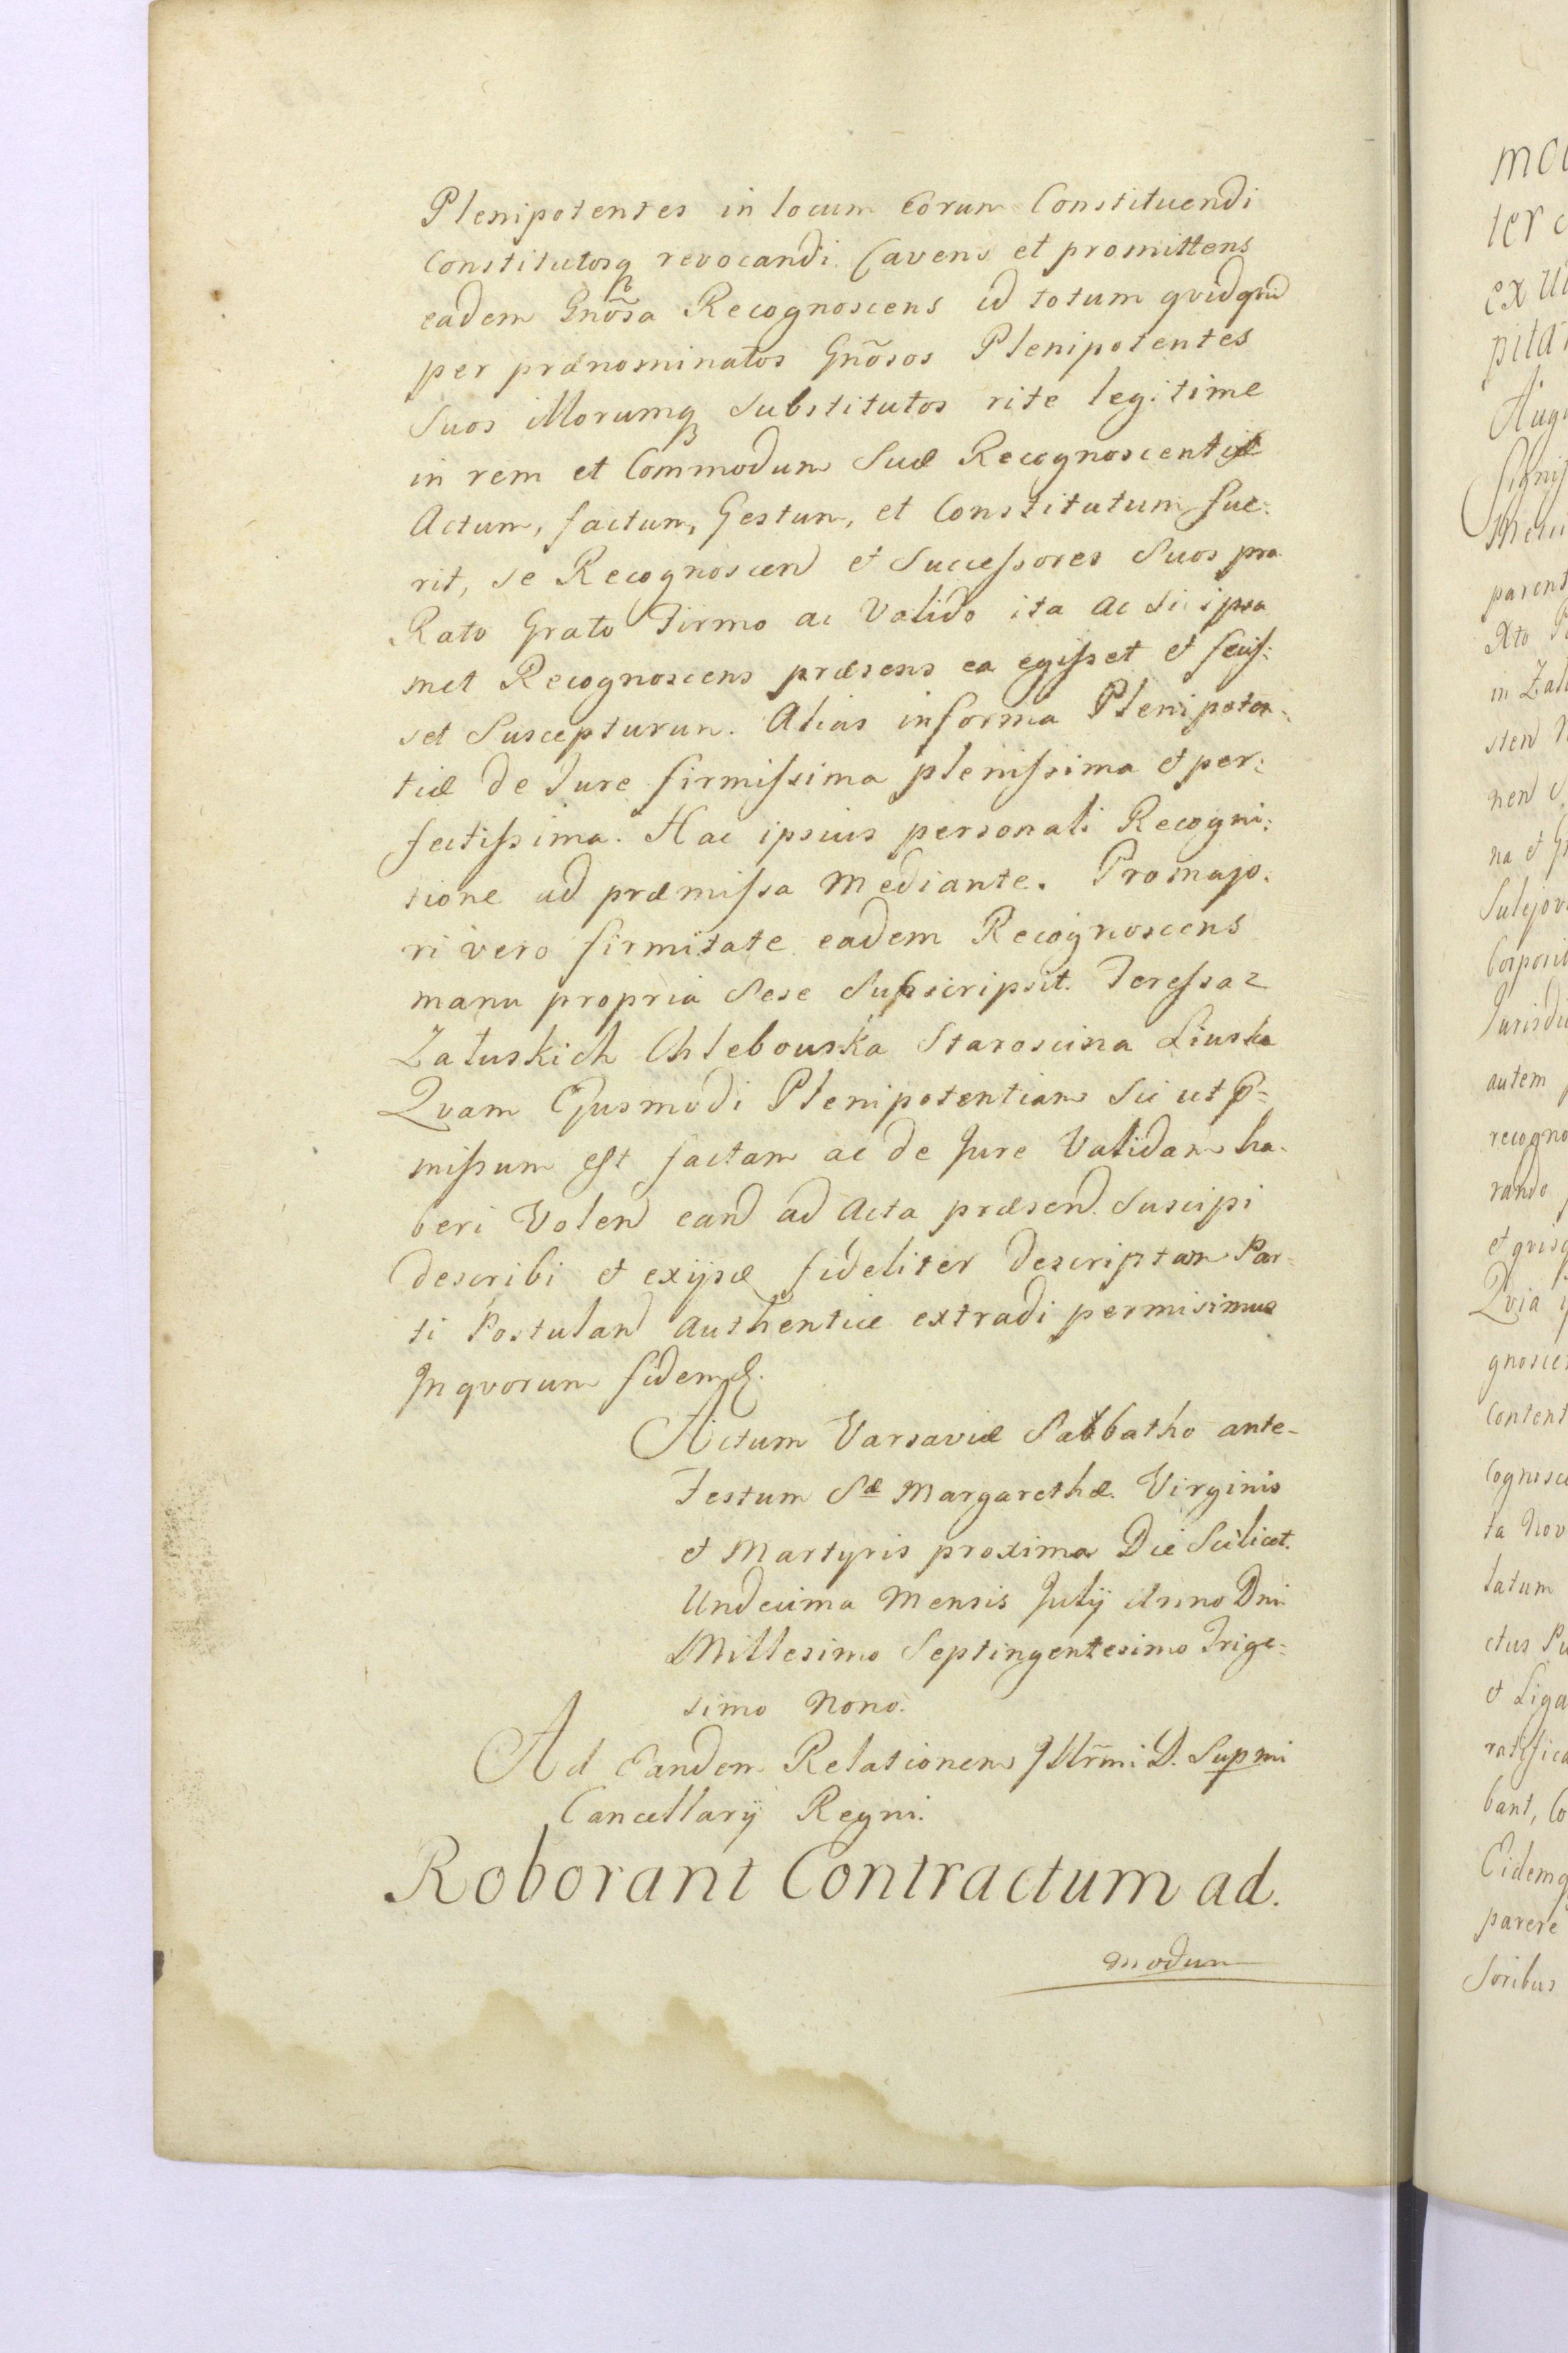 Plenipotentes in locum Eorum Constituendi
Constitutosq revocandi Cavens et promittens
eadem Gnõsa Recognoscens id totum qvidqvid
per prænominatos Gñosos Plenipotentes
Suos illorumq Substitutos rite legitime
in rem et Commodum Suæ Recognoscentis
Actum, factum, Gestum, et Constitutum fue:
rit, se Recognoscen et Successores Suos pro
Rato Grato Firmo ac Valido ita ac Si ipsa
met Recognoscens præsens ea egisset et fecis:
set Suscepturum. Alias in forma Plenipoten:
tiæ de Jure firmissima plenissima et per:
fectissima. Hac ipsius personali Recogni:
tione ad præmissa Mediante. Pro majo:
ri vero firmitate eadem Recognoscens
manu propria Sese Subscripsit. Teressa z
Załuskich Chlebowska Staroscina Liwska
Qvam Ejusmodi Plenipotentiam Sic ut p=
missum est factam ac de Jure Validam ha:
beri Volen eand ad Acta præsend. Suscipi
describi et exijsd fideliter descriptam Par:
ti Postuland Authentice extradi permisimus
In qvorum fidem &.
Actum Varsaviæ Sabbatho ante-
Festum Sæ Margarethæ Virginis
et Martyris proximo Die Scilicet.
Undecima Mensis Julÿ Anno Dni
Millesimo Septingentesimo Trige:
simo Nono.
Ad Eandem Relationem Illrm̃i D. Supmi
Cancellarÿ Regni.
Roborant Contractum ad.
modum
mo
ter c
ex
pita
Aug
parent
Xto
in Zal
sten
nen
na et
Sulejov
Jurisdi
autem
recogno
rando
et qvis
Qvia
gnosce
Content
Cognosc
ta Nov
latum
ctus Pu
et Liga
ratifica
bant, Co
Eidemq
parere
soribus